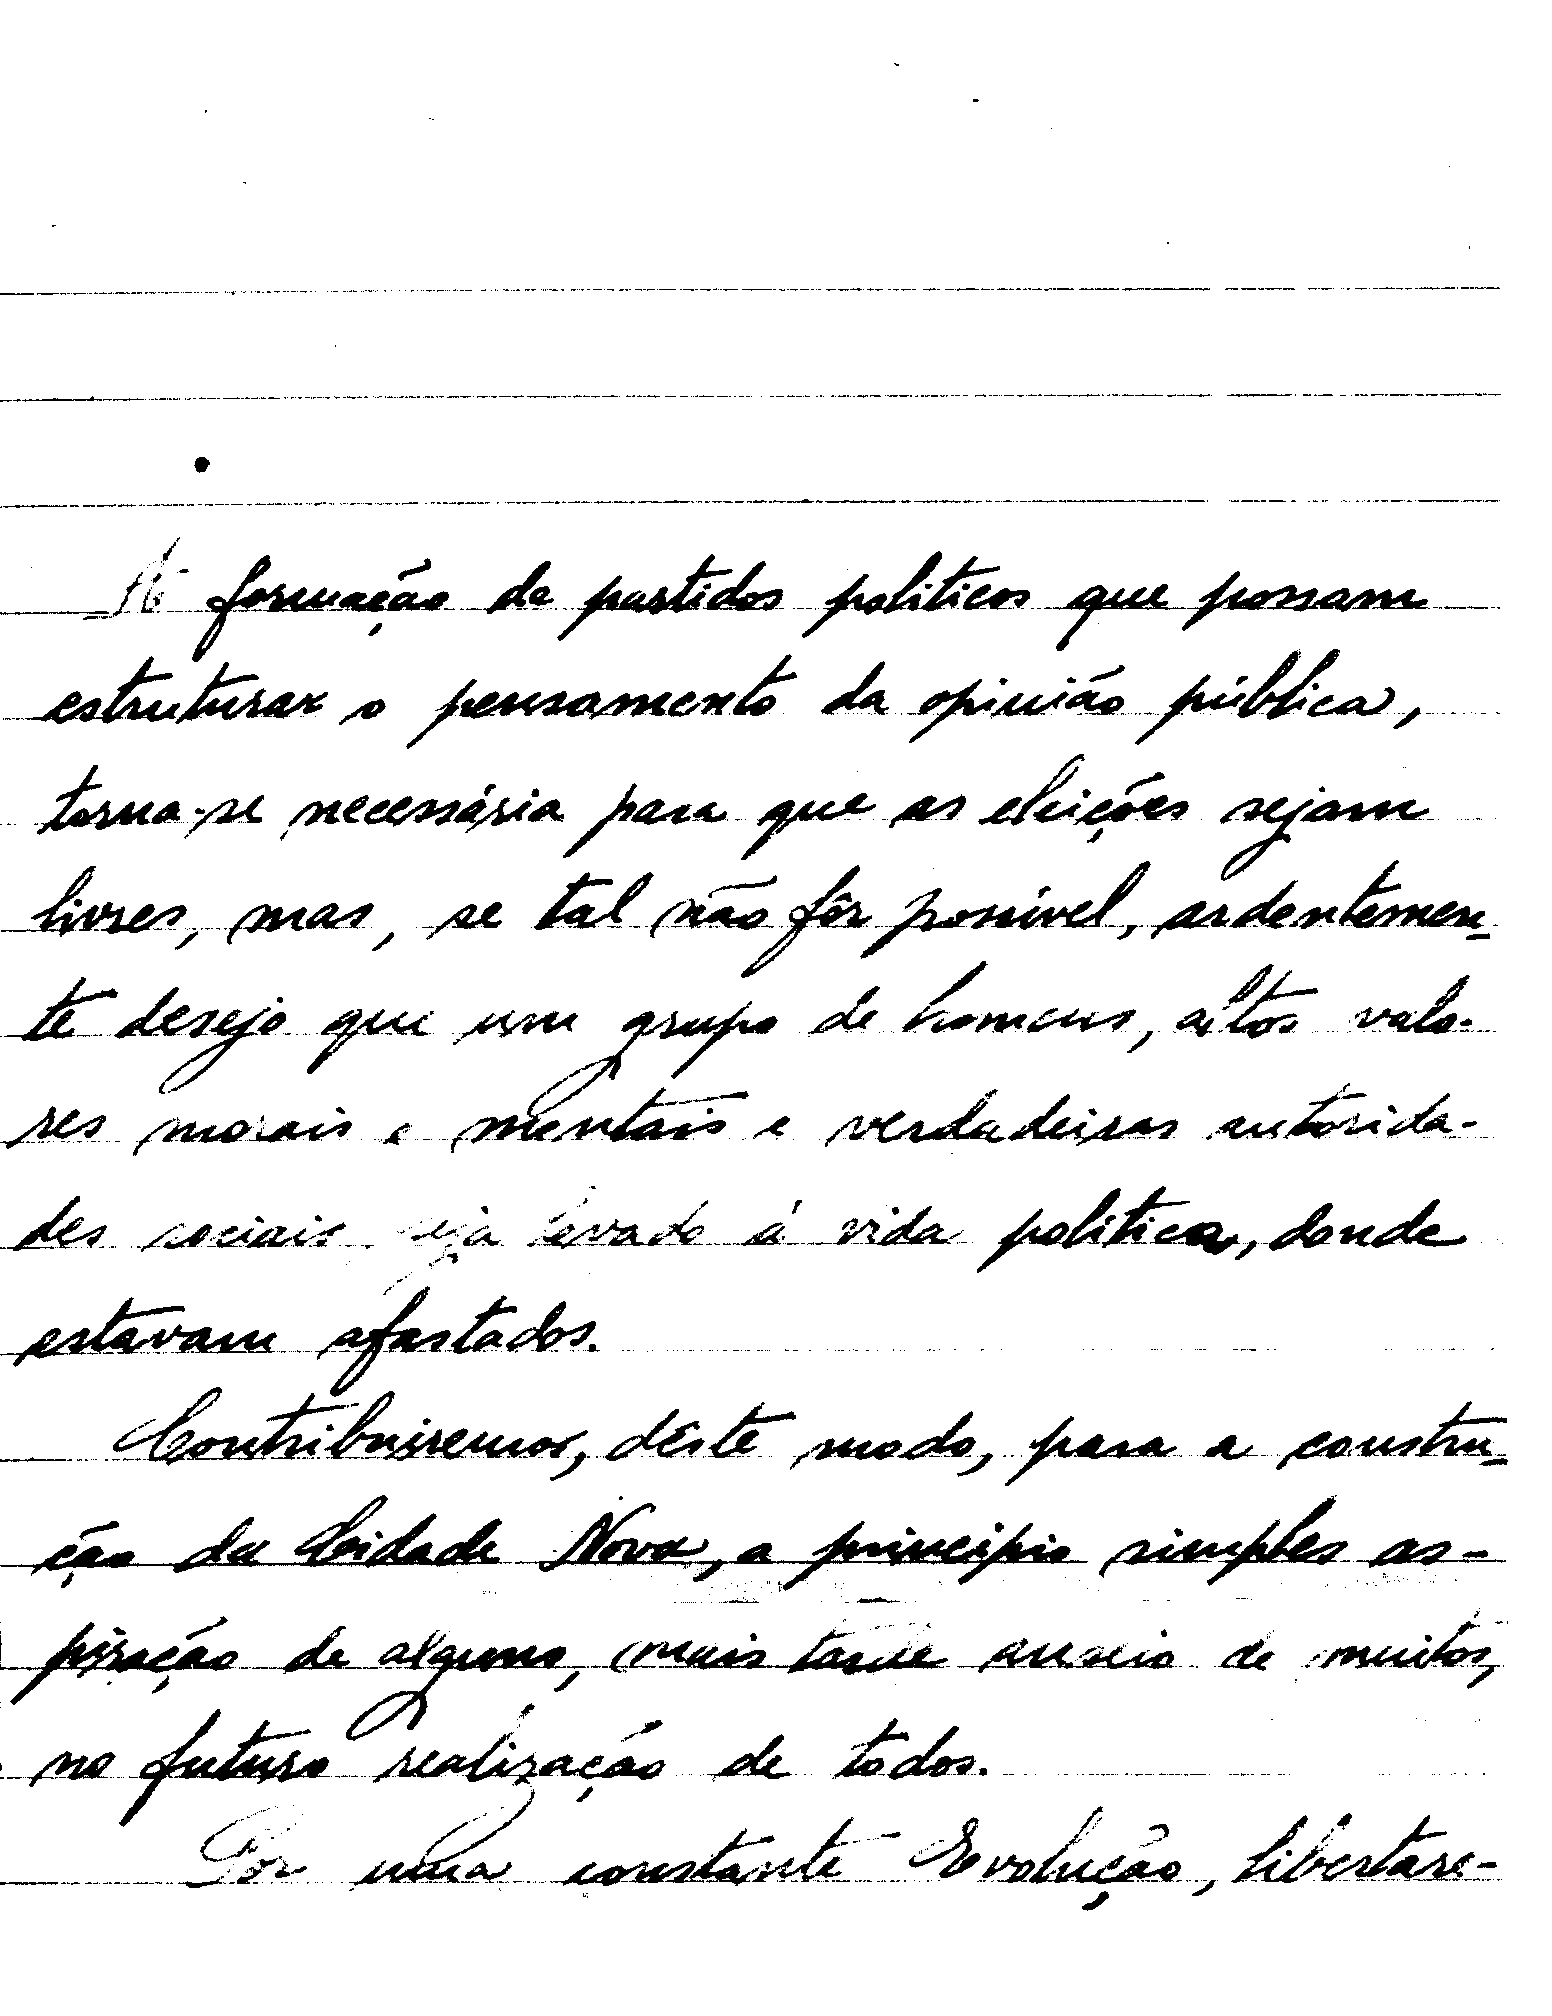 A formação de partidos politicos que possam
estruturar o pensamento da opinião pública,
torna-se necessária para que as eleições sejam
livres, mas, se tal não fôr possivel, ardentemen-
te desejo que um grupo de homens, altos valo-
res morais e mentais e verdadeiras autorida-
des sociais seja levado á vida politica, donde
estavam afastados.
Contribuiremos, dêste modo, para a constru-
ção da Cidade Nova, a principio simples as-
piração de alguns, mais tarde anseio de muitos,
no futuro realização de todos.
Por uma constante Evolução, libertare-